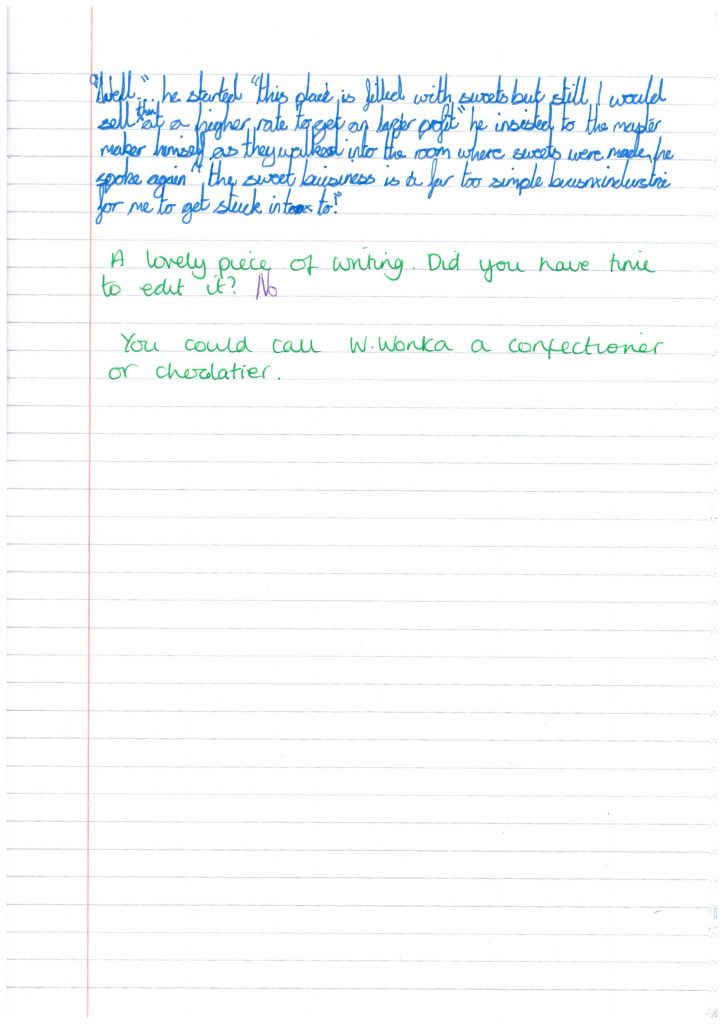 "Well.." he started "this place is filled with sweets but still, I would
sell this at a higher rate to get an larger profit" he insisted to the master
maker himself as they walked into the room where sweets were made, he
spoke again "the sweet buisness is a far too simple industrie
for me to get stuck in to!"
A lovely piece of writing. Did you have time
to edit it? No
You could call W.Wonka a confectioner
or chocolatier.